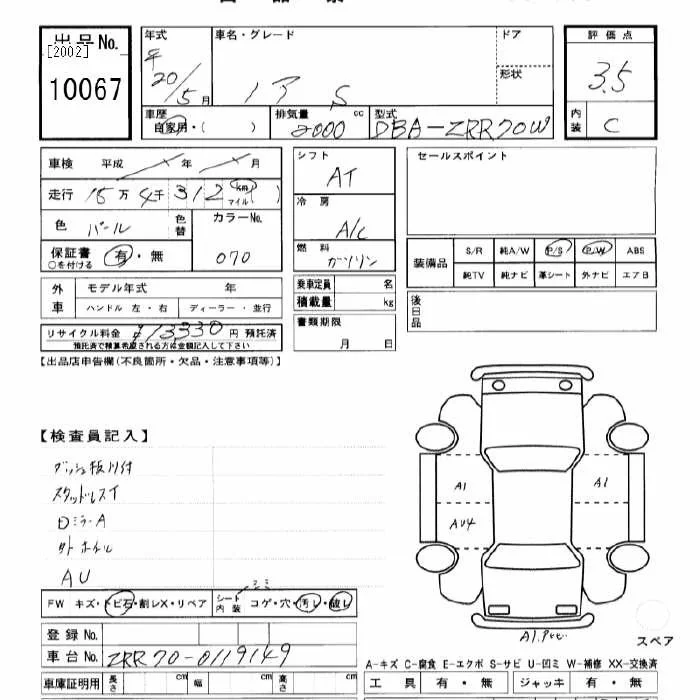 出品No.
[2002]
10067
年式
年
20/5月
車名・グレード
S
ドア
形状
評価点
3.5
内装
C
車歴
自家用・( )
排気量
2000 cc
型式
DBA-ZRR70W
車検 平成 年 月
走行 15万4千312 km マイル ( )
色 パール
色替
カラーNo.
070
保証書 有・無
○を付ける
外車
モデル年式 年
ハンドル 左・右 ディーラー・並行
リサイクル料金 ¥13330円 預託済
預託済で積算希望される方に金額記入して下さい
シフト
AT
冷房
A/C
燃料
ガソリン
乗車定員 名
積載量 kg
書類期限
月 日
セールスポイント
装備品
S/R 純A/W P/S P/W ABS
純TV 純ナビ 革シート 外ナビ エアB
後日品
【出品店申告欄(不良箇所・欠品・注意事項等)】
【検査員記入】
スタッドレスイ
ロミラーA
外ホイル
AU
A1
A1
AU4
FW キズ・トビ石・割レX・リペア
シート内装 コゲ・穴・汚レ・破レ
登録No.
車台No. ZRR70-0119149
車庫証明用 長さ cm 幅 cm 高さ cm
スペア
A-キズ C-腐食 E-エクボ S-サビ U-凹ミ W-補修 XX-交換済
工具 有・無 ジャッキ 有・無